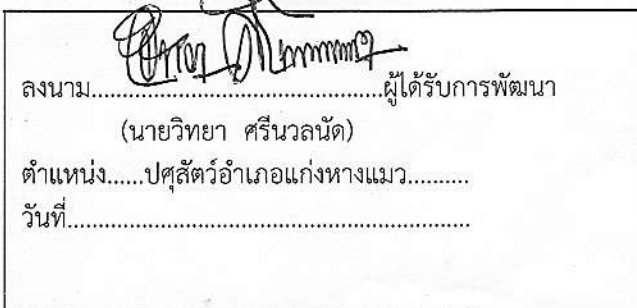 ลงนาม................................................ผู้ได้รับการพัฒนา
(นายวิทยา ศรีนวลนัด)
ตำแหน่ง......ปศุสัตว์อำเภอแก่งหางแมว..........
วันที่....................................................................